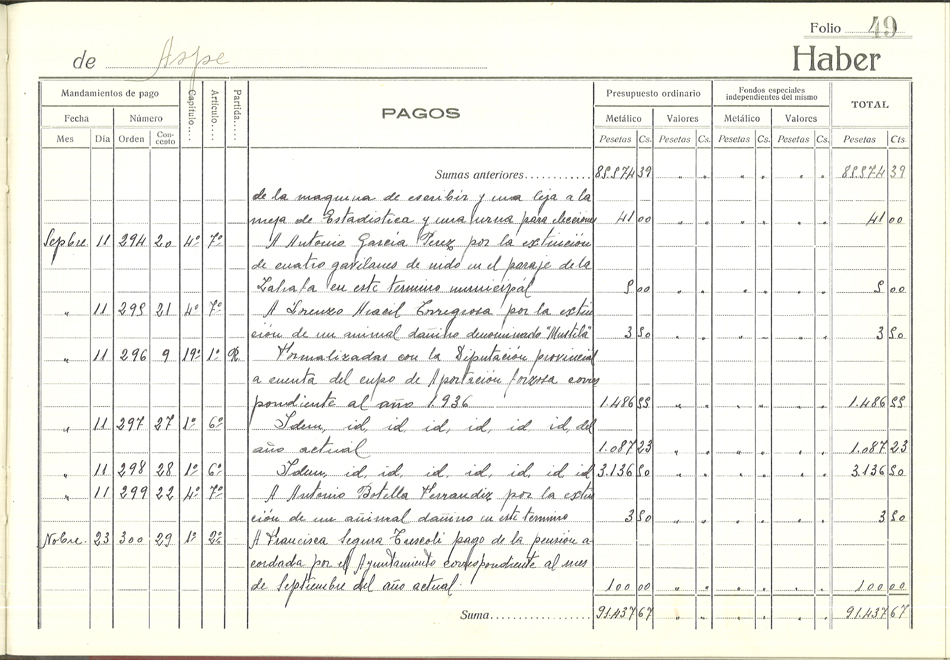 Folio 49
de Aspe
Haber
Mandamientos de pago Capítulo.... Artículo.... Partida..... PAGOS Presupuesto ordinario Fondos especiales independientes del mismo TOTAL
Fecha Número Metálico Valores Metálico Valores
Mes Día Orden Concepto Pesetas Cs. Pesetas Cs. Pesetas Cs. Pesetas Cs. Pesetas Cts.
Sumas anteriores............ 85574 39 " " " " " " 85574 39
de la maquina de escribir y una lija a la
mesa de Estadistica y una urna para elecciones 41 00 " " " " " " 41 00
Sepbre. 11 294 20 4º 7º A Antonio García Perez por la extinción
de cuatro gavilanes de nido en el paraje de la
en este termino municipal 5 00 " " " " " " 5 00
" 11 295 21 4º 7º A Lorenzo Miralles Torregrosa por la extin
ción de un animal dañino denominado "Mustela" 3 50 " " " " " " 3 50
" 11 296 9 19º 1º R. Formalizadas con la Diputación provincial
a cuenta del cupo de Aportación forzosa corres
pondiente al año 1.936 1.486 55 " " " " " " 1.486 55
" 11 297 27 1º 6º Idem, id, id, id, id, id, del
año actual 1.087 23 " " " " " " 1.087 23
" 11 298 28 1º 6º Idem, id, id, id, id, id, id 3.136 50 " " " " " " 3.136 50
" 11 299 22 4º 7º A Antonio Botella Ferrandiz por la extin
ción de un animal dañino en este termino 3 50 " " " " " " 3 50
Nobre. 23 300 29 1º 2º A Francisca Segura pago de la pensión a-
cordada por el Ayuntamiento correspondiente al mes
de Septiembre del año actual. 100 00 " " " " " " 100 00
Suma.................. 91.437 67 " " " " " " 91.437 67